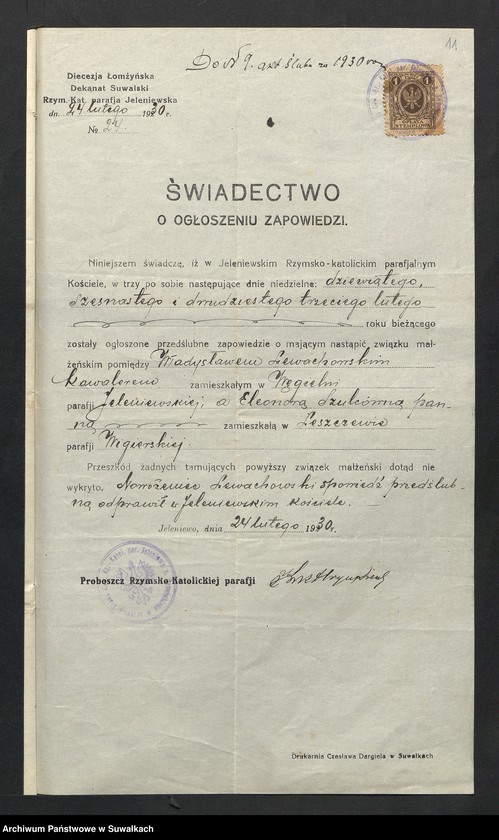 Do N 9. akt ślubu za 1930 rok
11
Diecezja Łomżyńska
Dekanat Suwalski
Rzym.-Kat. parafja Jeleniewska
dn. 24 lutego 1930 r.
№ 24.
1 1
OPŁATA STEMPLOWA
ŚWIADECTWO
O OGŁOSZENIU ZAPOWIEDZI.
Niniejszem świadczę, iż w Jeleniewskim Rzymsko-katolickim parafjalnym
Kościele, w trzy po sobie następujące dnie niedzielne: dziewiątego,
szesnastego i dwudziestego trzeciego lutego
roku bieżącego
zostały ogłoszone przedślubne zapowiedzie o mającym nastąpić związku mał-
żeńskim pomiędzy Władysławem Lewachowskim
Kawalerem zamieszkałym w Węgielni
parafji Jeleniewskiej, a Eleonorą dzukówną pan-
ną zamieszkałą w Leszczewie
parafji Wigierskiej.
Przeszkód żadnych tamujących powyższy związek małżeński dotąd nie
wykryto. Narzeczony Lewachowski spowiedź przedślub-
ną odprawił w Jeleniewskim kościele.
Jeleniewo, dnia 24 lutego 1930 r.
Proboszcz Rzymsko-Katolickiej parafji
Drukarnia Czesława Dargiela w Suwałkach
Archiwum Państwowe w Suwałkach